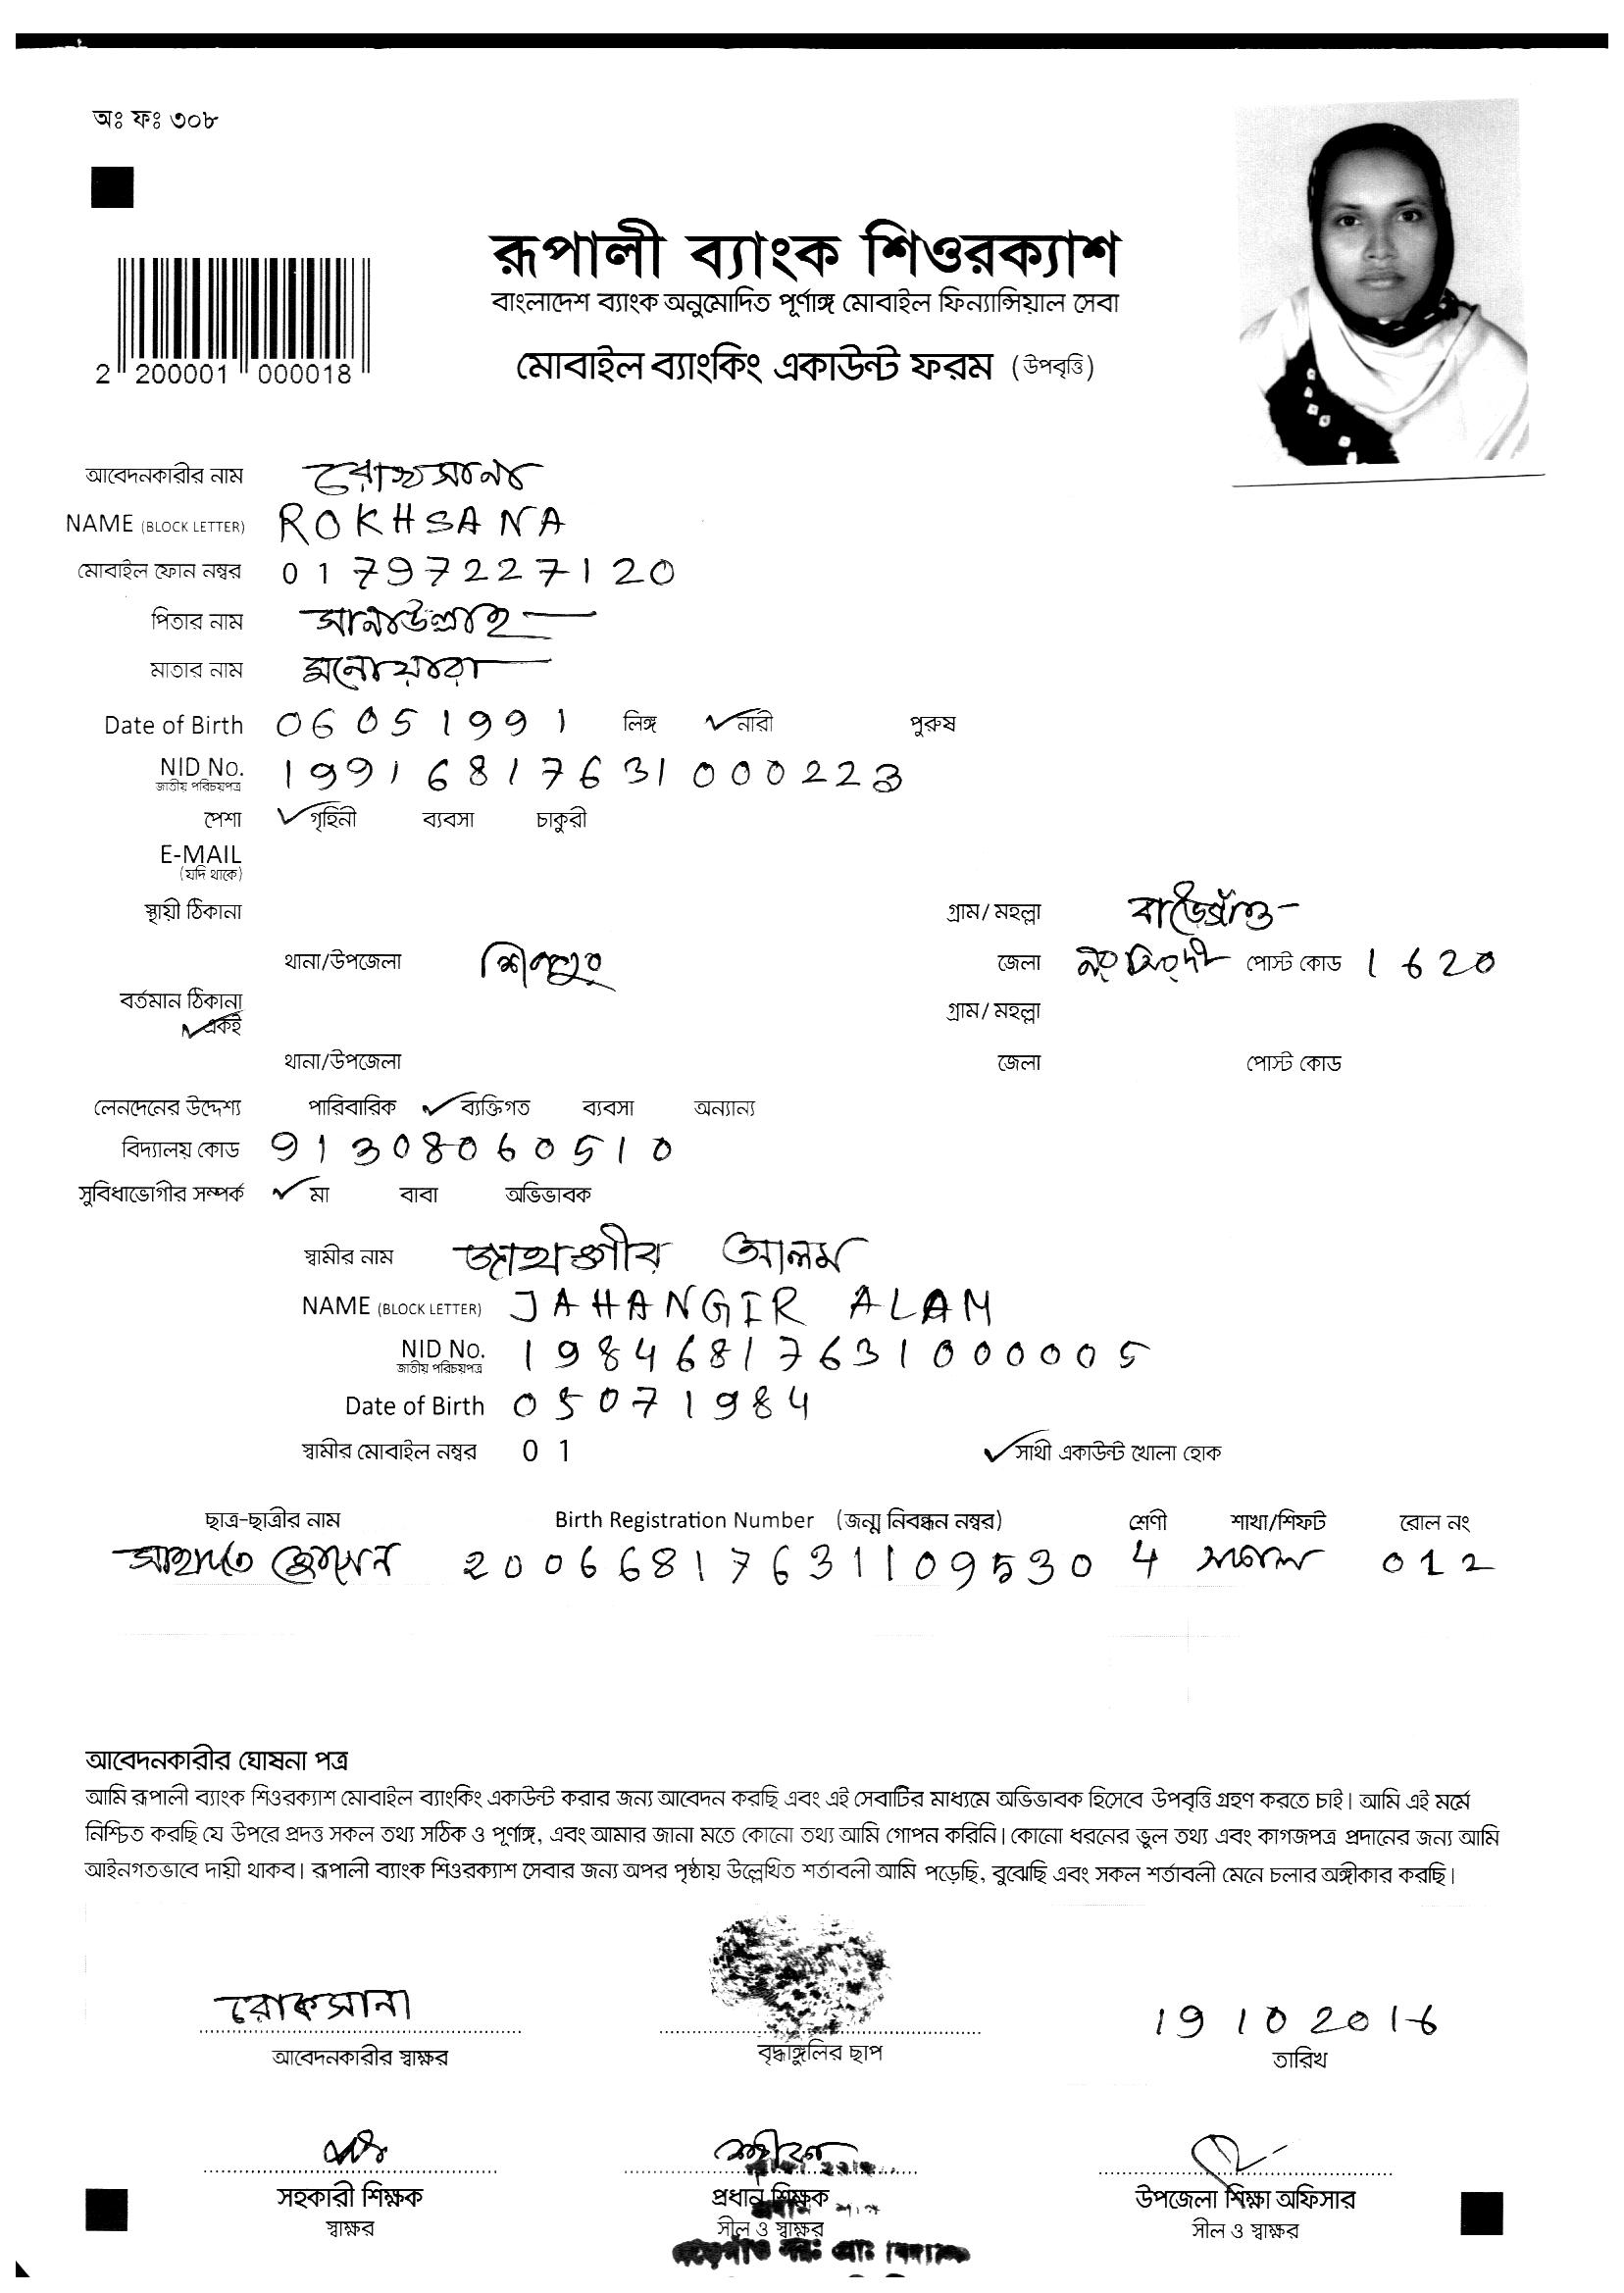 অঃ ফঃ ৩০৮
রূপালী ব্যাংক শিওরক্যাশ
বাংলাদেশ ব্যাংক অনুমোদিত পূর্ণাঙ্গ মোবাইল ফিন্যান্সিয়াল সেবা
মোবাইল ব্যাংকিং একাউন্ট ফরম (উপবৃত্তি)
2 200001 000018
আবেদনকারীর নাম রোখসানা
NAME (BLOCK LETTER) ROKHSANA
মোবাইল ফোন নম্বর 01797227120
পিতার নাম সানাউল্লাহ
মাতার নাম মনোয়ারা
Date of Birth 06051991 লিঙ্গ নারী পুরুষ
NID No. 19916817631000223
জাতীয় পরিচয়পত্র
পেশা গৃহিনী ব্যবসা চাকুরী
E-MAIL
(যদি থাকে)
স্থায়ী ঠিকানা গ্রাম/ মহল্লা বাড়ৈগাঁও
থানা/উপজেলা শিবপুর জেলা নরসিংদী পোস্ট কোড 1620
বর্তমান ঠিকানা গ্রাম/ মহল্লা
একই
থানা/উপজেলা জেলা পোস্ট কোড
লেনদেনের উদ্দেশ্য পারিবারিক ব্যক্তিগত ব্যবসা অন্যান্য
বিদ্যালয় কোড 91308060510
সুবিধাভোগীর সম্পর্ক মা বাবা অভিভাবক
স্বামীর নাম জাহাঙ্গীর আলম
NAME (BLOCK LETTER) JAHANGIR ALAM
NID No. 19846817631000005
জাতীয় পরিচয়পত্র
Date of Birth 05071984
স্বামীর মোবাইল নম্বর 01 সাথী একাউন্ট খোলা হোক
ছাত্র-ছাত্রীর নাম Birth Registration Number (জন্ম নিবন্ধন নম্বর) শ্রেণী শাখা/শিফট রোল নং
সাহাদাত হোসেন 20066817631109530 4 সকাল 012
আবেদনকারীর ঘোষনা পত্র
আমি রূপালী ব্যাংক শিওরক্যাশ মোবাইল ব্যাংকিং একাউন্ট করার জন্য আবেদন করছি এবং এই সেবাটির মাধ্যমে অভিভাবক হিসেবে উপবৃত্তি গ্রহণ করতে চাই। আমি এই মর্মে
নিশ্চিত করছি যে উপরে প্রদত্ত সকল তথ্য সঠিক ও পূর্ণাঙ্গ, এবং আমার জানা মতে কোনো তথ্য আমি গোপন করিনি। কোনো ধরনের ভুল তথ্য এবং কাগজপত্র প্রদানের জন্য আমি
আইনগতভাবে দায়ী থাকব। রূপালী ব্যাংক শিওরক্যাশ সেবার জন্য অপর পৃষ্ঠায় উল্লেখিত শর্তাবলী আমি পড়েছি, বুঝেছি এবং সকল শর্তাবলী মেনে চলার অঙ্গীকার করছি।
রোকসানা 19 10 2016
আবেদনকারীর স্বাক্ষর বৃদ্ধাঙ্গুলির ছাপ তারিখ
সহকারী শিক্ষক প্রধান শিক্ষক উপজেলা শিক্ষা অফিসার
স্বাক্ষর সীল ও স্বাক্ষর সীল ও স্বাক্ষর